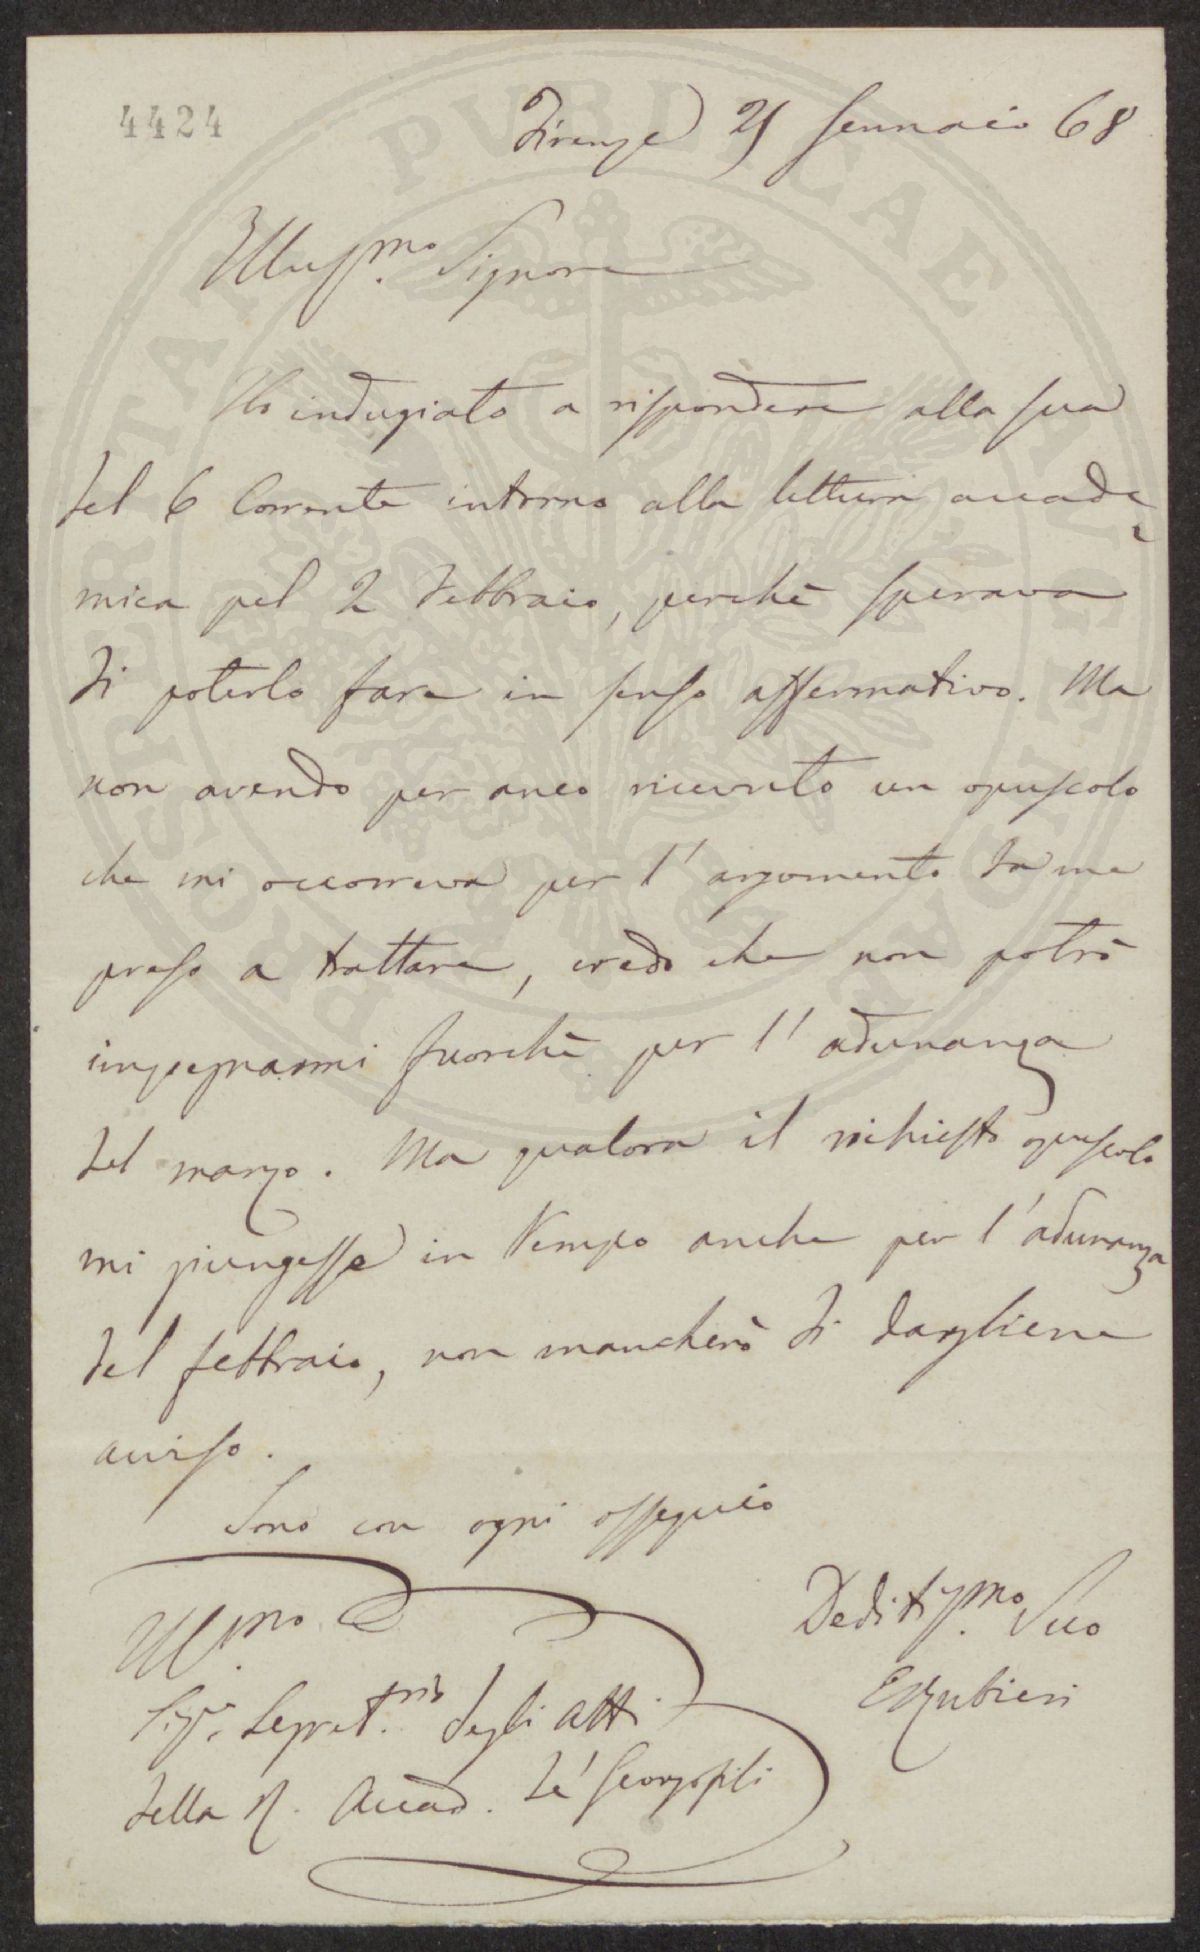 4424
Firenze 21 Gennaio 68
Illus.mo Signore
Ho indugiato a rispondere alla sua
del 6 Corrente intorno alla lettura accade
mica pel 2 Febbraio, perchè sperava
di poterlo fare in senso affermativo. Ma
non avendo per anco ricevuto un opuscolo
che mi occorreva per l'argomento da me
preso a trattare, credo che non potrò
impegnarmi fuorchè per l'adunanza
del marzo. Ma qualora il richiesto opuscolo
mi giungesse in tempo anche per l'adunanza
del febbraio, non mancherò di dargliene
avviso.
Sono con ogni ossequio
Deditiss.mo Suo
E Rubieri
Ill.mo
Sigr. Segret.rio degli Atti
della R. Accad. de' Georgofili
PROSPERITATI PUBLICAE AUGENDAE